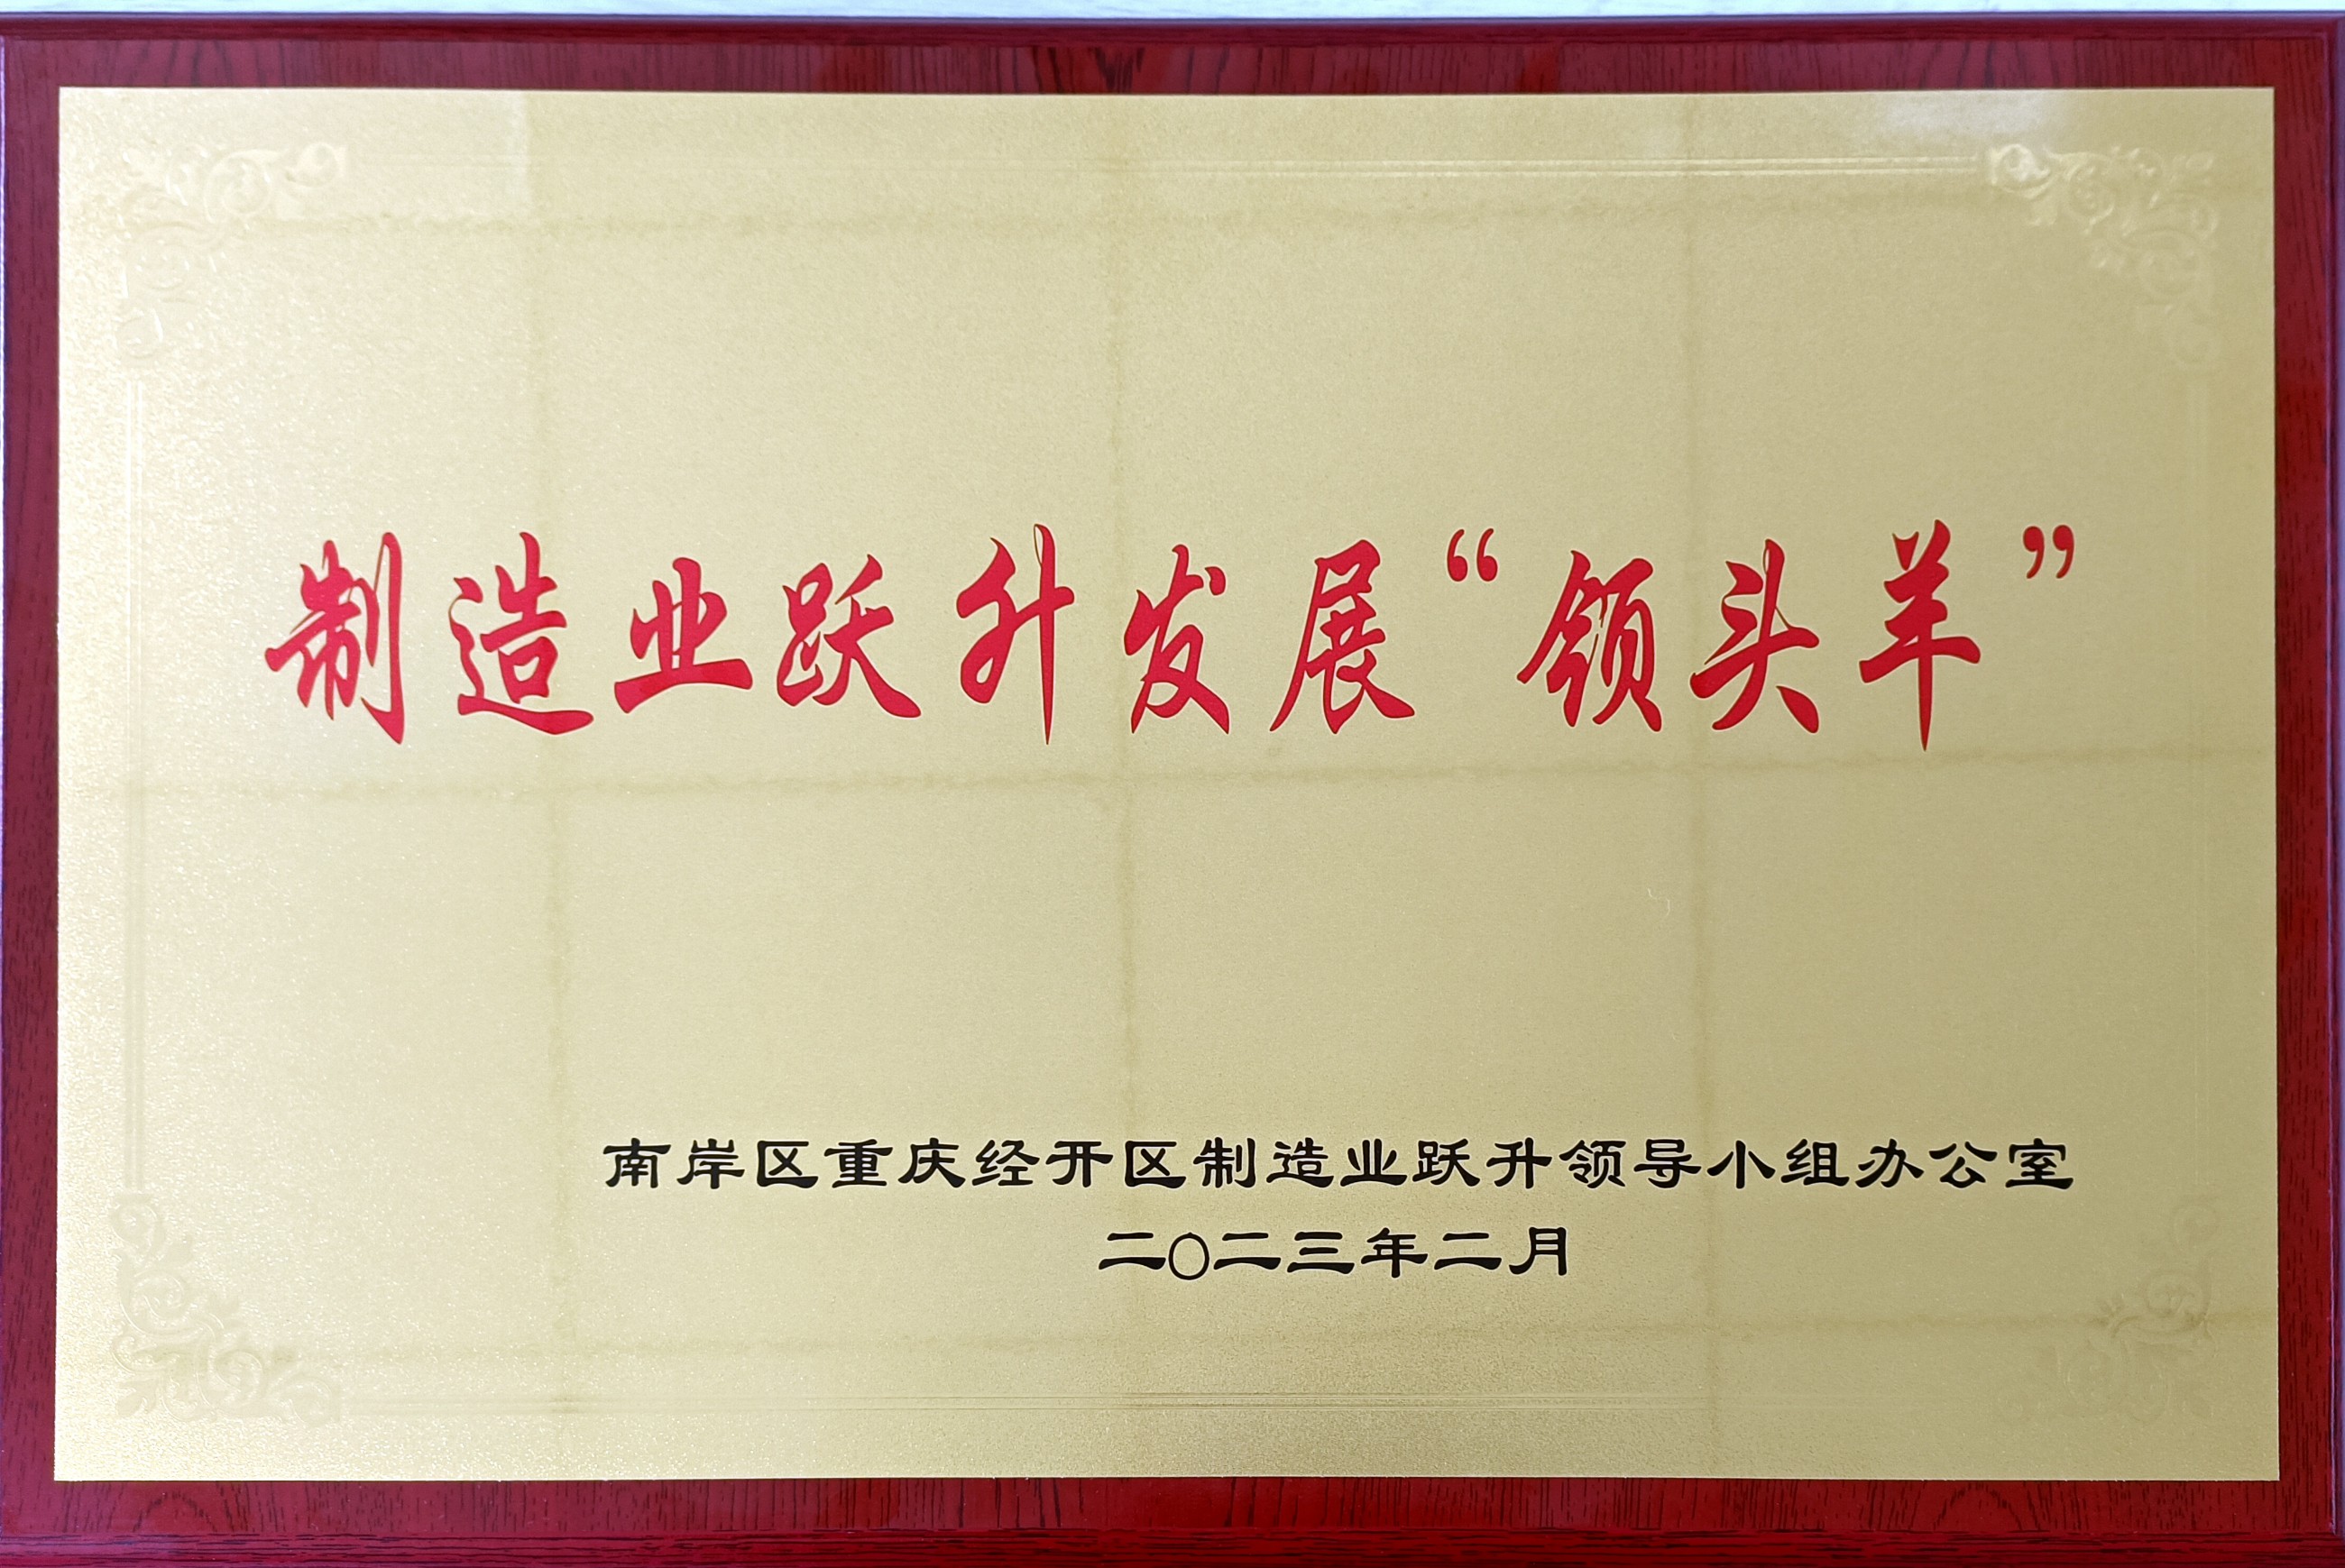 制造业跃升发展“领头羊”
南岸区重庆经开区制造业跃升领导小组办公室
二〇二三年二月